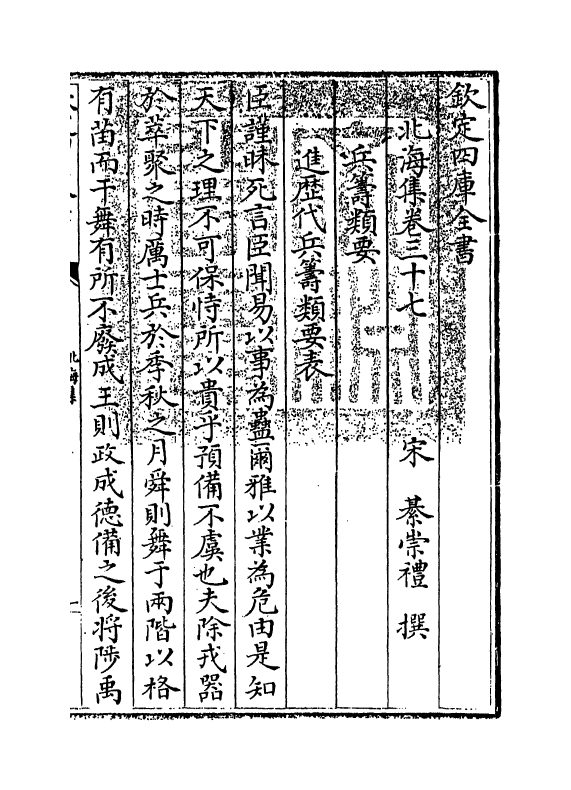 欽定四庫全書
北海集卷三十七　　宋　綦崇禮　撰
兵籌類要
進歴代兵籌類要表
臣謹昧死言臣聞易以事為蠱爾雅以業為危由是知
天下之理不可保恃所以貴乎預備不虞也夫除戎器
於萃聚之時厲士兵於季秋之月舜則舞干兩階以格
有苗而干舞有所不廢成王則政成徳備之後將陟禹
北海集